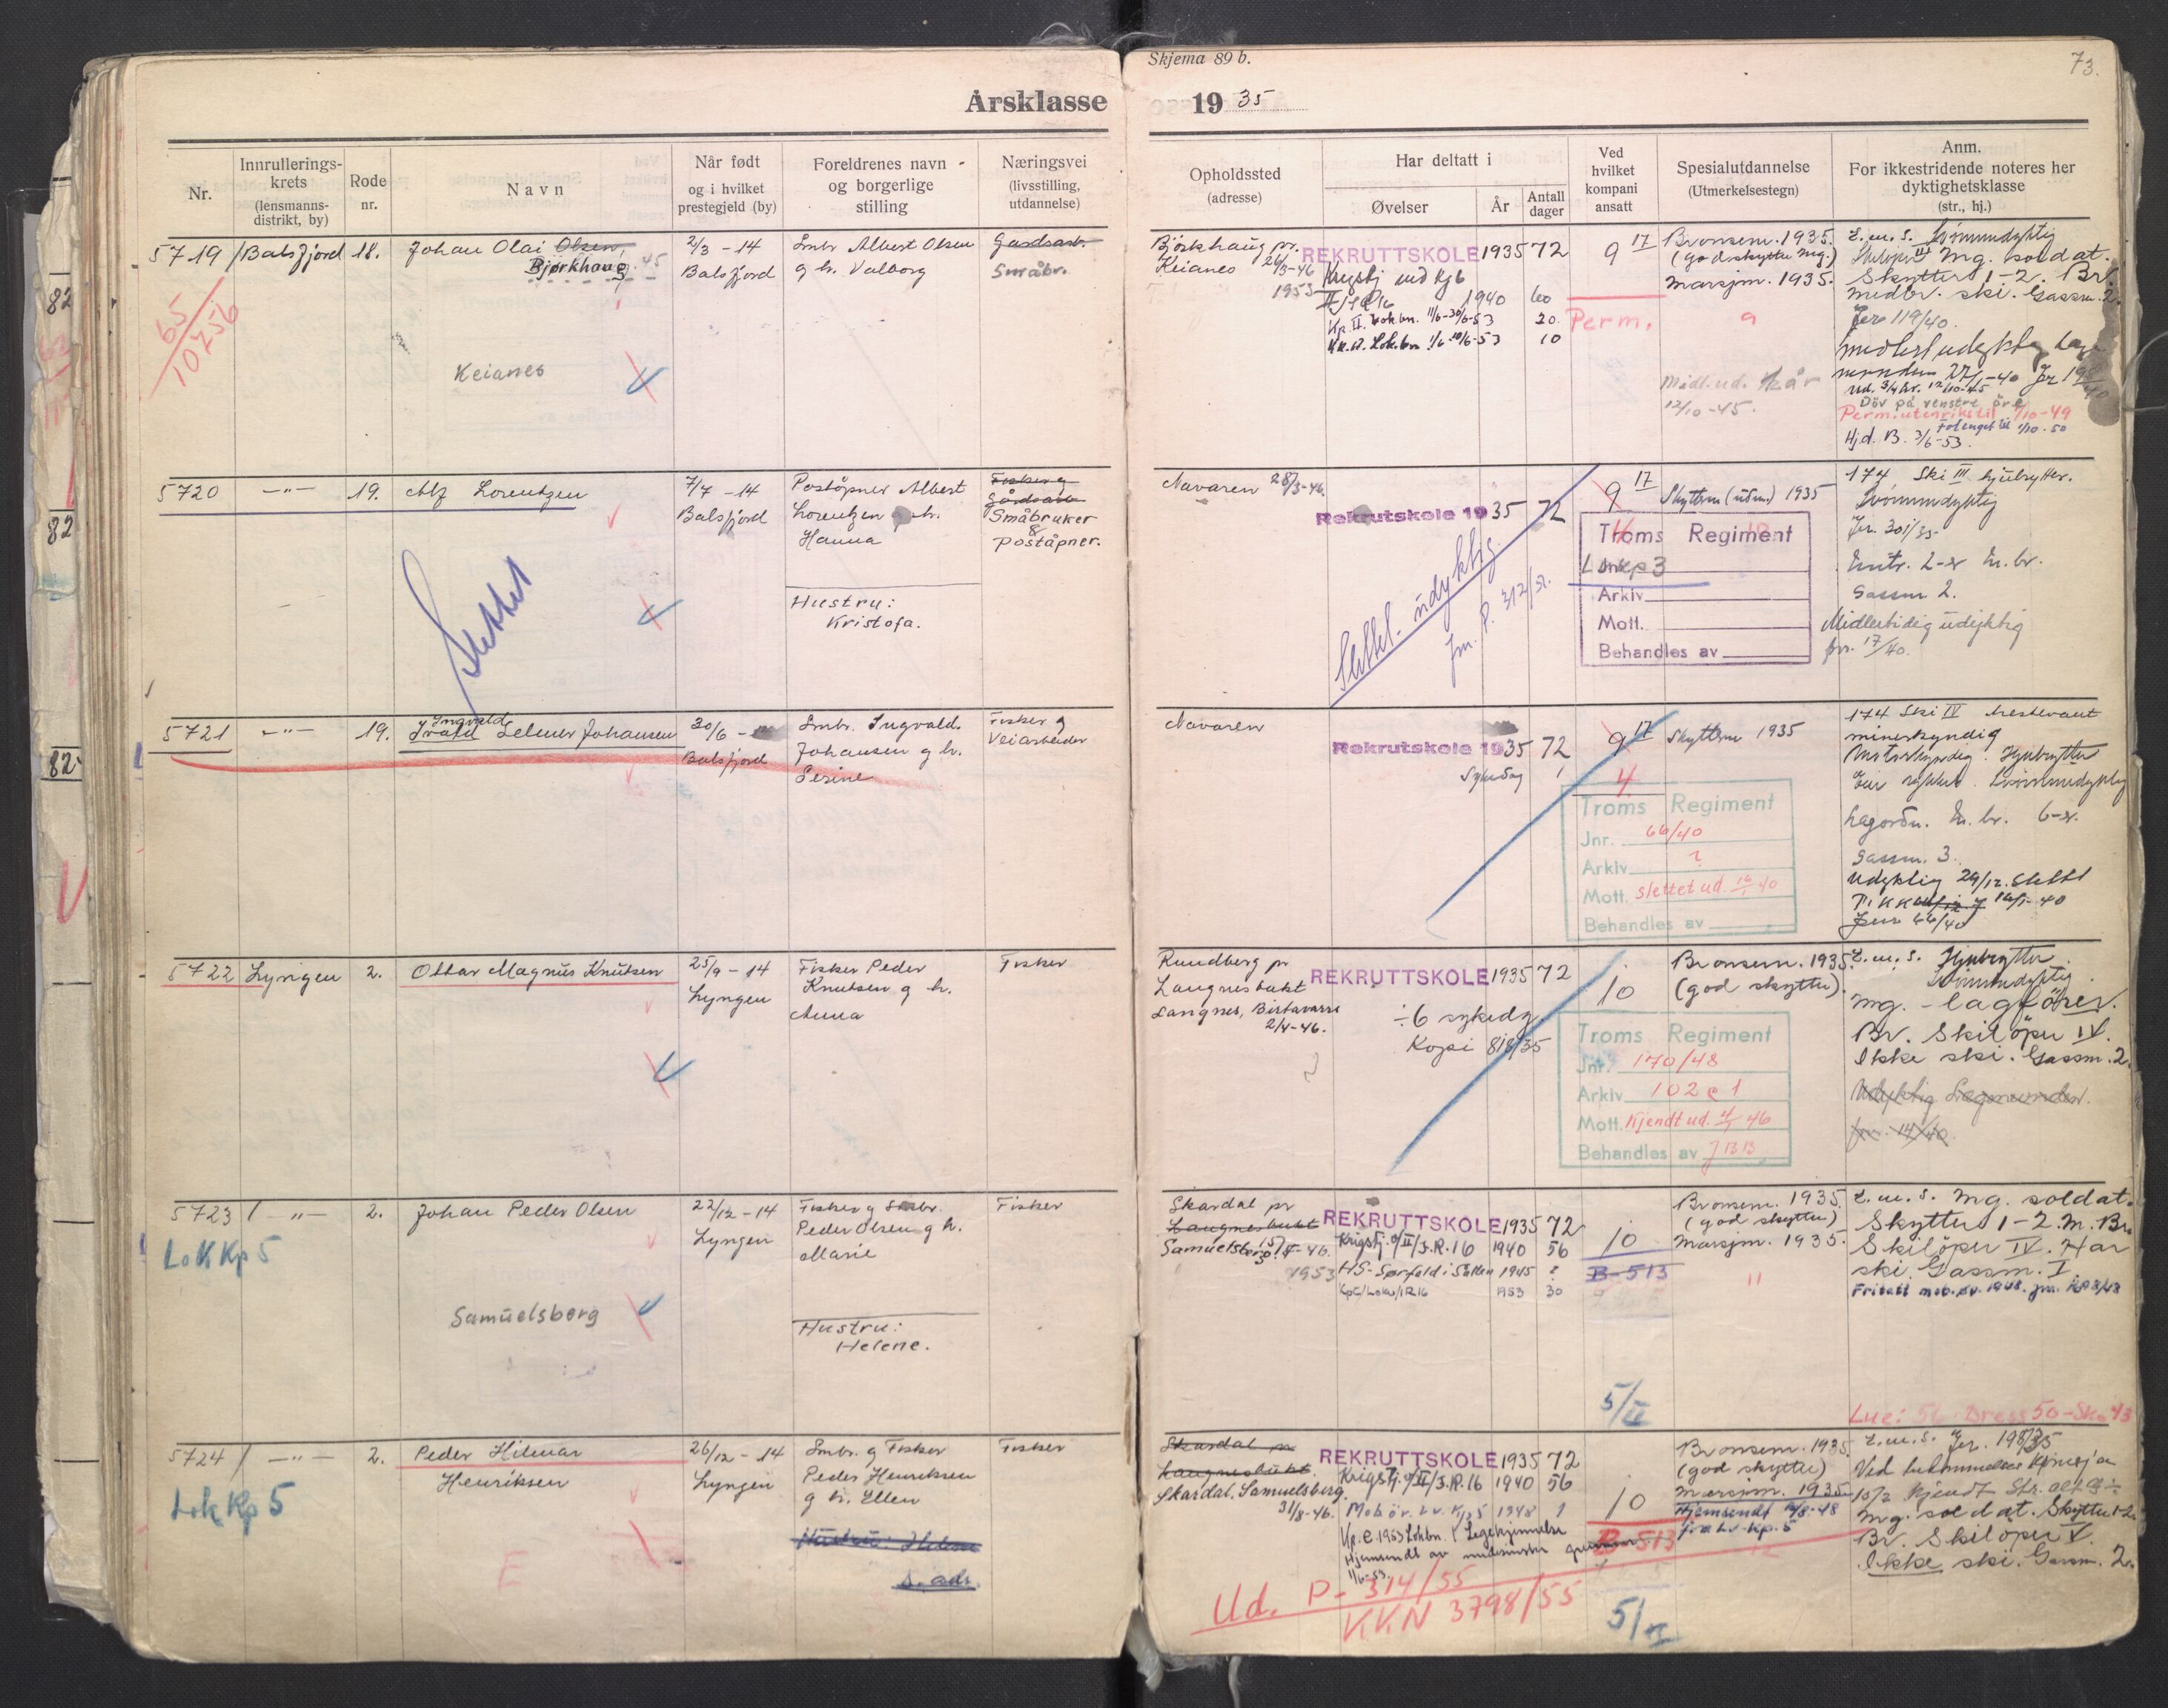 Skjema 89 b.
73.
Årsklasse 1935
Nr.
Innrullerings-
krets
(lensmanns-
distrikt, by)
Rode
nr.
Navn
Når født
og i hvilket
prestegjeld (by)
Foreldrenes navn
og borgerlige
stilling
Næringsvei
(livsstilling,
utdannelse)
Opholdssted
(adresse)
Har deltatt i
Øvelser
År
Antall
dager
Ved
hvilket
kompani
ansatt
Spesialutdannelse
(Utmerkelsestegn)
Anm.
For ikkestridende noteres her
dyktighetsklasse
(str., hj.)
5719 Balsfjord 18. Johan Olai Olsen
Bjørkhaug 45
65
10256
Keianes
2/3 - 14
Balsfjord
Smbr Albert Olsen
g h. Valborg
Gaardsarb.
Småbr.
Bjørkhaug pr.
Keianes 26/3-46
1953
REKRUTTSKOLE 1935 72
1940 60
11/6-30/6-53 20
1/6-10/6-53 10
9 17
Perm.
Bronsem. 1935.
(god skytter mg.)
Marsjm. 1935.
9
12/10-45.
L.m.S. Svømmedyktig
Skiløper III Mg. soldat.
Skytter 1-2. Br.
medbr. ski. Gassm. 2.
Jnr 119/40.
Døv på venstre øre
Perm. utenriks til 1/10-49
Forlenget til 1/10-50
Hjd. B. 3/6-53.
5720 -"- 19. Alf Lorentzen
Slettet
7/7 - 14
Balsfjord
Poståpner Albert
Lorentzen g h.
Hanna
Hustru:
Kristofa.
Fisker g
Gårdsarb.
Småbruker
&
poståpner.
Navaren 28/3-46.
Rekrutskole 1935 72
Slettet. udyktig
jnr. P. 312/52.
9 17
Skyttem (udm.) 1935
Troms Regiment
Jnr.
Lokp 3
Arkiv
Mott.
Behandles av
174 Ski III hjulrytter.
Svømmedyktig
Jnr. 301/35
Gassm 2.
Midlertidig udyktig
jnr. 17/40.
5721 -"- 19. Ingvald Selmer Johansen
20/6 -
Balsfjord
Smbr. Ingvald
Johansen g h.
Serine
Fisker g
Veiarbeider
Navaren
Rekrutskole 1935 72
Sykedag 1
9 17
4
Skyttem 1935
Troms Regiment
Jnr. 66/40
Arkiv ?
Mott. slettet ud. 16/1 40
Behandles av
174 Ski IV
minekyndig
Motorkyndig. Hjulrytter
Eier sykkel. Svømmedyktig
Gassm. 3.
Udyktig 29/12. slettet
16/1-40
Jnr 66/40
5722 Lyngen 2. Ottar Magnus Knutsen
25/9 - 14
Lyngen
Fisker Peder
Knutsen g h.
Anna
Fisker
Rundberg pr
Langnesbukt
Langnes, Birtavarre
2/4-46.
REKRUTTSKOLE 1935 72
÷ 6 sykedg.
Kopi 818/35
10
Bronsem. 1935.
(god skytter)
Troms Regiment
Jnr. 170/48
Arkiv 102 e 1
Mott. Kjendt ud. 4/1 46
Behandles av JBB
L.m.S. Hjulrytter
Svømmedyktig
Mg. - lagfører.
Br. Skiløper IV.
Ikke ski. Gassm. 2.
Udyktig Lægenemnden.
jnr. 14/40.
5723 -"- 2. Johan Peder Olsen
Lok Kp 5
Samuelsberg
22/12 - 14
Lyngen
Fisker g Smbr.
Peder Olsen g h.
Marie
Hustru:
Helene.
Fisker
Skardal pr
Langnesbukt
Samuelsberg 15/5-46.
1953
REKRUTTSKOLE 1935 72
Krigstj. v/II/I.R. 16 1940 56
HS-Sørfold i Salten 1945 ?
KpC/Lokbn/IR16 1953 30
10
B-513
5/II
Bronsem. 1935.
(god skytter)
Marsjm. 1935.
11
L.m.S. Mg. soldat.
Skytter 1-2. M. Br.
Skiløper IV. Har
ski. Gassm. I.
Fritatt mob.øv. 1948. jnr.
Lue: 56 Dress 50 - Sko 43
5724 -"- 2. Peder Hilmar
Henriksen
Lok Kp 5
E
26/12 - 14
Lyngen
Smbr. g Fisker
Peder Henriksen
g h. Ellen
Hustru: Helene
s. adr.
Fisker
Skardal pr
Langnesbukt.
Skardal, Samuelsberg
31/8-46.
REKRUTTSKOLE 1935 72
Krigstj. v/II/I.R. 16 1940 56
Mob.öv. Lv. Kp 5 1948 1
Kp. C. 1953 Lokbn. Legekjennelse
Hjemsendt av medisinske grunner
11/6-53.
Ud. P- 314/55
V.K.N 3798/55
10
B-513
5/II
Bronsem. 1935
(god skytter)
Marsjm. 1935.
Hjemsendt 14/8-48
fra Lv-Kp. 5
12
L.m.S. Jnr. 198/35
Mg. soldat. Skytter 1-2.
Br. Skiløper V.
Ikke ski. Gassm. 2.
82
82
82